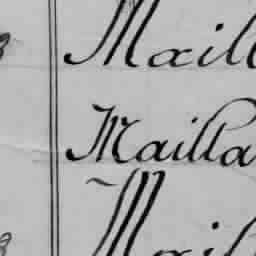 Maill
Mailla
Mail